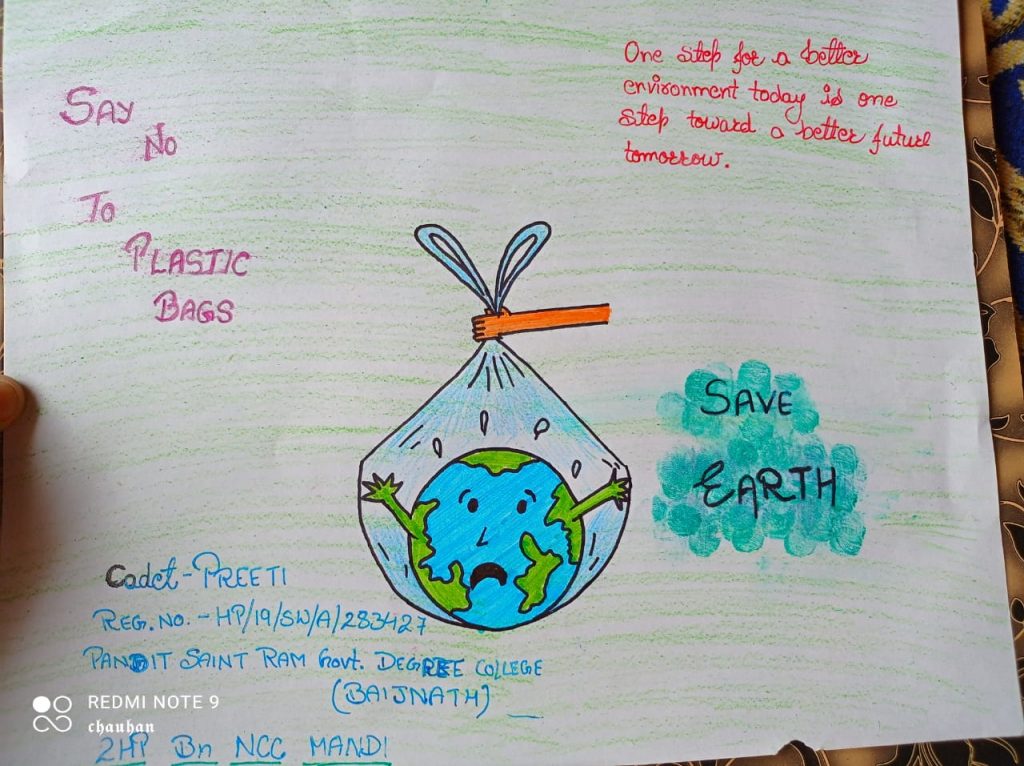 SAY
NO
TO
PLASTIC
BAGS
One step for a better
environment today is one
step toward a better future
tomorrow.
SAVE
EARTH
Cadet-PREETI
REG. NO. - HP/19/SW/A/283427
PANDIT SAINT RAM Govt. DEGREE COLLEGE
(BAIJNATH)
2HP Bn NCC MANDI
REDMI NOTE 9
chauhan